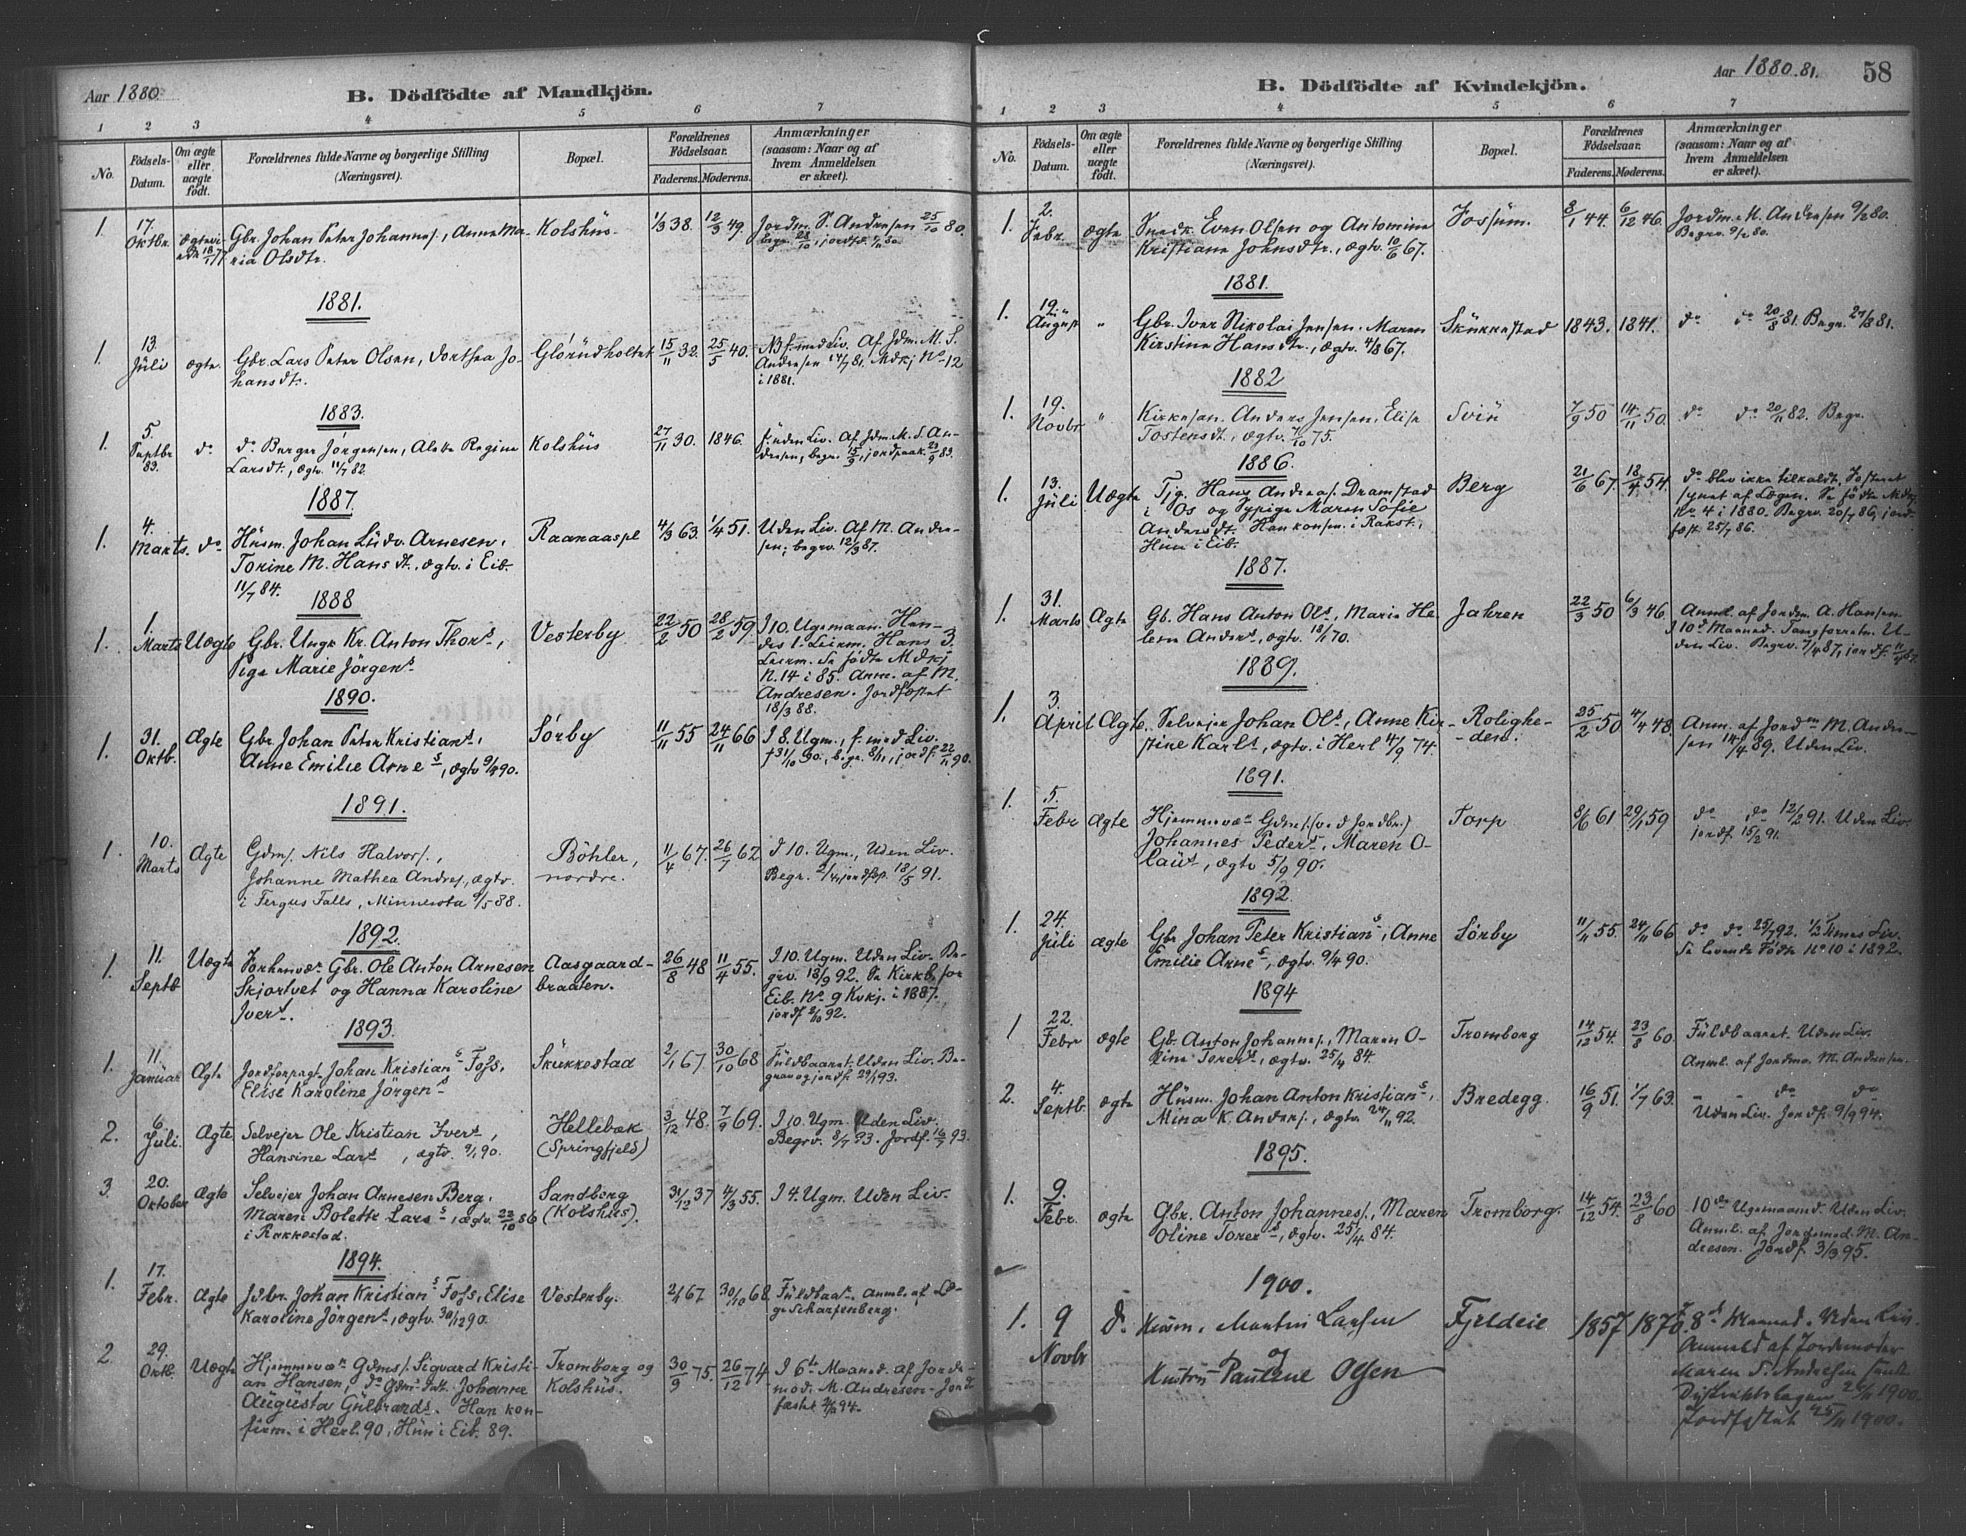 Aar 1880.
B. Dödfödte af Mandkjön.
1 2 3 4 5 6 7
No. Födsels-Datum. Om ægte eller uægte födt. Forældrenes fulde Navne og borgerlige Stilling (Næringsvei). Bopæl. Forældrenes Födselsaar. Faderens. Moderens. Anmærkninger (saasom: Naar og af hvem Anmeldelsen er skeet).
1. 17. Oktbr. Gbr. Johan Peter Johannes., Anne Ma- Kolshüs 1/3 38. 12/3 49. Jordm. S. Andersen 25/10 80.
ria Olsdtr. begr. 28/10, jordf.
1881.
1. 13. Jüli ægte. Gbr. Lars Peter Olsen, Dorthea Jo- Glörüdholtet 15/11 32. 25/5 40. Af Jdm. M. S.
hansdt. Andersen 14/7 81. Mdkj No 12
i 1881.
1883.
1. 5. Septbr 83. do do Berger Jörgensen, Regine Kolshüs 27/11 30. 1846. f. uden Liv. Af Jdm. M. S. An-
Larsdt., ægtv. 11/7 82. dersen, begr. 15/9, jordpaak. 23/9 83.
1887.
1. 4. Marts. do Hüsm. Johan Lüdv. Arnesen, Raanaaspl 4/3 63. 1/4 51. Uden Liv. Af M. Andre-
Torine M. Hansdt., ægtv. i Eib. sen; begrv. 12/3 87.
11/7 84.
1888
1. 1. Marts Uægte Gbr. Ungk. Kr. Anton Thors., Vesterby 22/2 50 28/2 59 I 10. Ugemaan. Hen-
Pige Marie Jörgens. des 1. Leierm. Hans 3.
Leierm. Se födte Mdkj
N. 14 i 85. Anm. af M.
Andresen. Jordfæstet
18/3 88.
1890.
1. 31. Oktb. Ægte Gbr. Johan Peter Kristians., Sörby 11/11 55 24/11 66 I 8. Ugm., f. med Liv.
Anne Emilie Arnes., ægtv 9/4 90. † 31/10 90., begr. 8/11, jordf. 22/11 90.
1891.
1. 10. Marts Ægte Gdms. Nils Halvors., Böhler, 11/4 67. 26/7 62 I 10. Ugm., Uden Liv.
Johanne Mathea Andres., ægtv. nordre. Begr. 2/4, jordfsp. 18/5 91.
i Fergus Falls, Minnesota 9/5 88.
1892.
1. 11. Septb. Uægte Forhenvæ. Gbr. Ole Anton Arnesen Aasgaard- 26/8 48 11/4 55. I 10. Ugm. Uden Liv. Be-
Skjortvet og Hanna Karoline braaten. grv. 18/9 92. Se Kirkb. for
Ivers. Eib. No. 9 Kvkj. i 1887.
jordf 2/10 92.
1893.
1. 11. Januar Ægte Jordforpagt. Johan Kristians. Foss, Skükkestad 2/1 67. 30/10 68 Füldbaaret. Uden Liv. Be-
Elise Karoline Jörgens. grav og jordf. 29/1 93.
2. 6. Jüli. Ægte Selvejer Ole Kristian Ivers., Hellebæk 3/12 48. 7/9 69. I 10. Ugm. Uden Liv.
Hansine Lars., ægtv. 9/1 90. (Springfjeld) Begrv. 8/7 93. Jordf. 16/7 93.
3. 20. Oktober Ægte Selvejer Johan Arnesen Berg, Sandberg 31/12 37 4/3 55. I 4. Ugm. Uden Liv.
Maren Bolette Lars., ægtv. 23/10 86 (Kolshüs).
i Rakkestad.
1894.
1. 17. Febr. Ægte Jdbr. Johan Kristians. Foss, Elise Vesterby. 2/1 67 30/10 68. Füldbaa. Anml. af Læ-
Karoline Jörgens., ægtv. 30/12 90. ge Scharffenberg.
2. 29. Oktb. Uægte Hjemmevæ. Gdms. Sigvard Kristi- Tromborg og 30/9 75. 26/12 74 I 6te Maaned. af Jorde-
an Hansen, do Gdm. Johanne Kolshüs. mod. M. Andresen. Jord-
Augüsta Gülbrands. Han kon- fæstet 94.
firm. i Herl. 90, Hün i Eib. 89.
Aar 1880. 81. 58
B. Dödfödte af Kvindekjön.
1 2 3 4 5 6 7
No. Födsels-Datum. Om ægte eller uægte födt. Forældrenes fulde Navne og borgerlige Stilling (Næringsvei). Bopæl. Forældrenes Födselsaar. Faderens. Moderens. Anmærkninger (saasom: Naar og af hvem Anmeldelsen er skeet).
1. 2. Febr. ægte Snedk. Even Olsen og Antomine Fossüm. 8/1 44. 6/12 46. Jordm. M. Andresen 9/2 80.
Kristiane Johnsdtr., ægtv. 10/6 67. Begrv. 9/2 80.
1881.
1. 19. Augüst " Gbr. Iver Nikolai Jensen, Maren Skükkestad 1843. 1841. do do 20/8 81. Begr. 27/8 81.
Kirstine Hansdtr., ægtv. 4/8 67.
1882
1. 19. Novbr " Kirkesan. Anders Jensen, Elise Svin 7/9 50 14/11 50. do do 20/11 82. Begr.
Tostensdt., ægtv. 7/10 75.
1886.
1. 13. Jüli Uægte Tjg. Hans Andreas. Dramstad Berg 21/6 67. 18/4 54. do blev ikke tilkaldt. Fosteret
i Os og Pige Maren Sofie synet af Lægen. Se födte Mdkj
Andersdt. Han konfm. i Rakst., No 4 i 1880. Begrv. 20/7 86, jord-
Hün i Eib. fæst. 25/7 86.
1887.
1. 31. Marts Ægte Gb. Hans Anton Ols., Maria He- Jahren 22/3 50 6/3 46. Anml. af Jordm. A. Hansen
lene Anders., ægtv. 18/1 70. I 10de Maaned. Tangforretn. U-
den Liv. Begrv. 7/4 87, jordf. 11/4 87.
1889.
1. 3. April Ægte. Selvejer Johan Ols., Anne Kir- Rolighe- 25/2 50 4/4 48. Anm. af Jordm M. Andre-
stine Karls., ægtv. i Herl 4/9 74. -den. sen 14/4 89. Uden Liv.
1891.
1. 5. Febr Ægte Hjemmevæ. Gdmt. (ved Jordbr.) Torp 8/6 61 29/1 59 do do 12/2 91. Uden Liv.
Johannes Peders., Maren O- jordf. 15/2 91.
laüs., ægtv 5/9 90.
1892.
1. 24. Jüli ægte Gbr. Johan Peter Kristians., Anne Sörby 11/11 55. 24/11 66 do do 25/7 92. 1/2 Times Liv.
Emilie Arnes., ægtv. 9/4 90. Se levende Födte No 10 i 1892.
1894
1 22. Febr ægte Gb. Anton Johannes., Maren O- Tromborg 14/12 54. 23/8 60. Füldbaaret. Uden Liv.
line Torers., ægtv. 25/4 84. Anml. af Jordmo. M. Andersen.
2. 4. Septb. ægte Hüsm. Johan Anton Kristians., Bredegg. 16/9 51. 1/7 63. do do
Mina K. Anders., ægtv. 24/11 92. Uden Liv. Jordf. 9/9 94.
1895.
1. 9. Febr. ægte Gbr. Anton Johannes., Maren Tromborg. 14/12 54. 23/8 60 10de Ugemaaned. Uden Liv.
Oline Torers., ægtv. 25/4 84. Anml. af Jordemod. M. An-
dresen. Jordf. 3/3 95.
1900.
1. 9 Novbr D. Husm. Martin Larsen Fjeldeie 1857 1870 8d Maaned. Uden Liv.
og Anmeld af Jordemoder
Hustru Pauline Olsen Maren S. Andresen samt
Distriktslægen 26/11 1900.
Jordfæstet 25/11 1900.